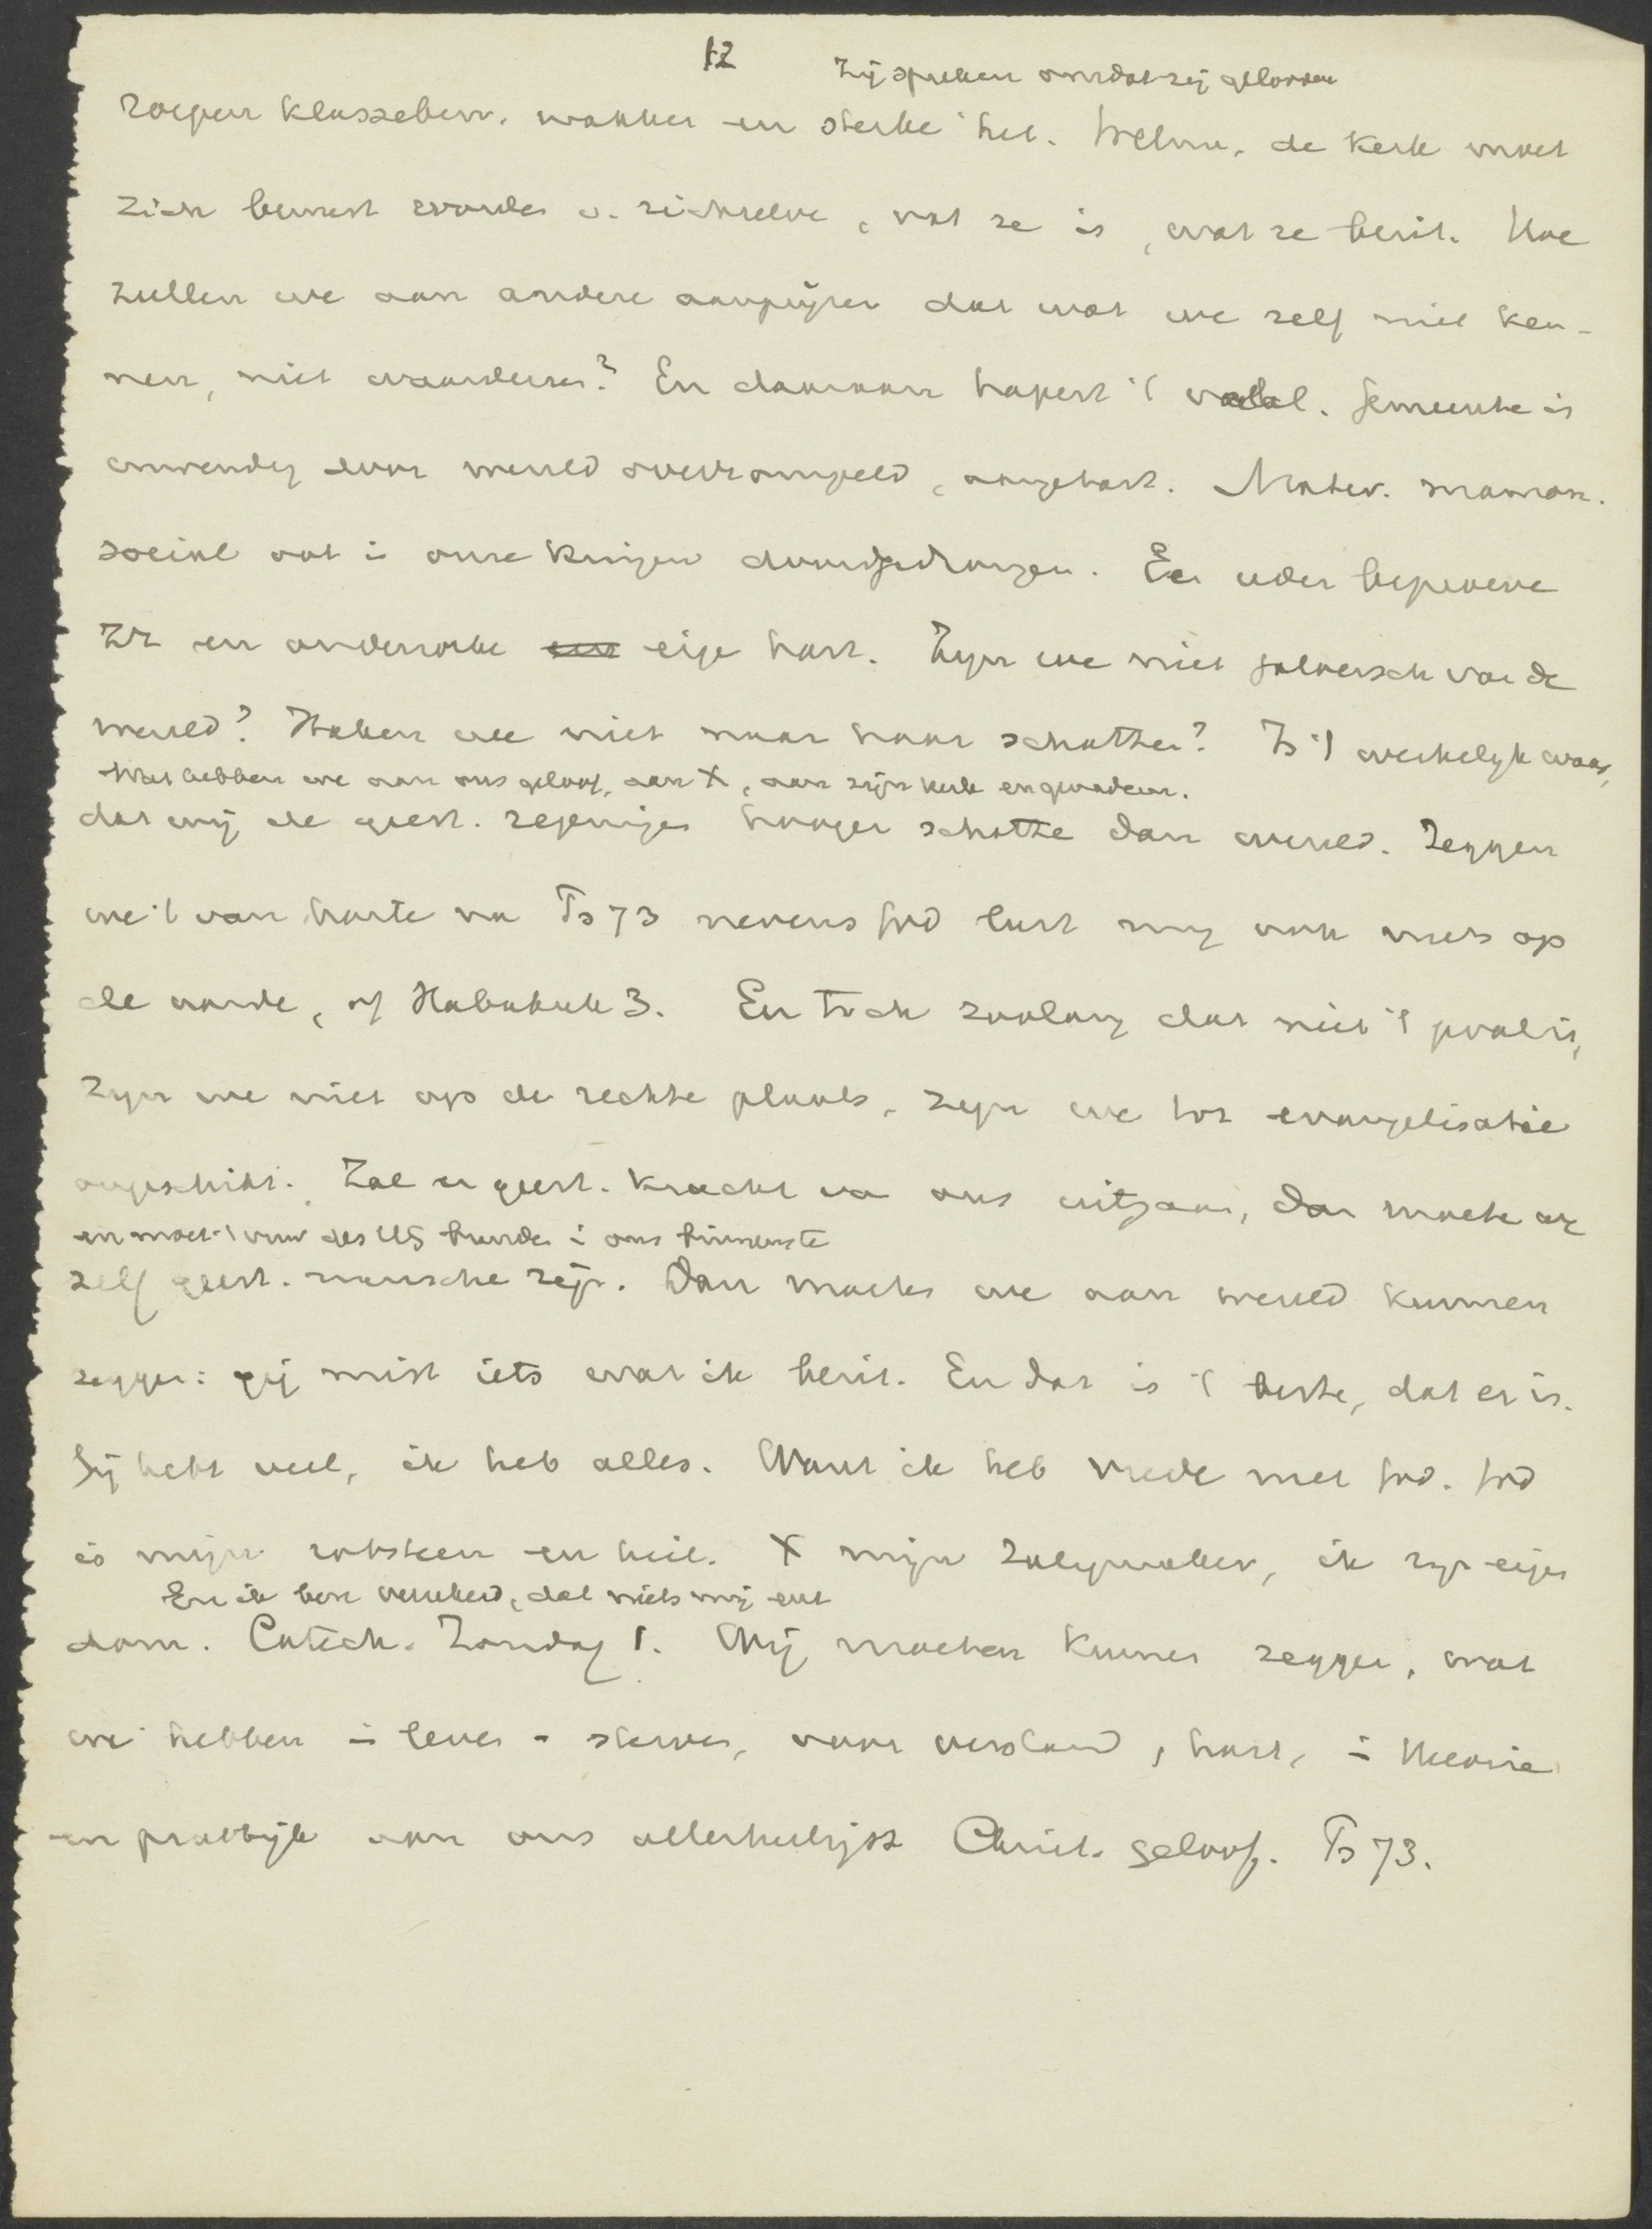 12
Zij spreken omdat zij geloven
roepen klassebew. wakker en sterke het. Welnu, de kerk moet
zich bewust worden v. zichzelve, wat ze is, wat ze bezit. Hoe
zullen we aan andere aanprijzen dat wat we zelf niet ken-
nen, niet waarderen? En daaraan hapert 't veelal. Gemeente is
inwendig door wereld overrompeld, aangetast. Mater. mamon.
social ook i onze kringen doorgedrongen. Een ieder beproeve
zr en onderzoeke eige hart. Zijn we niet jaloersch van de
wereld? Haken we niet naar haar schatten? Is 't werkelijk waar,
Wat hebben we aan ons geloof, aan X, aan zijn kerk en genadeur.
dat wij de geest. zegeninges hooger schatte dan wereld. Zeggen
we 't van harte na Ps 73 nevens God lust mij ook niets op
de aarde, of Habakuk 3. En toch zoolang dat niet 't geval is,
zijn we niet op de rechte plaats, zijn we tot evangelisatie
ongeschikt. Zal er geest. kracht va ons uitgaan, dan moete we
en moet 't vuur des HG branden i ons binnenste
zelf geest. mensche zijn. Dan moeten we aan wereld kunnen
zeggen: gij mist iets wat ik bezit. En dat is 't beste, dat er is.
Gij hebt veel, ik heb alles. Want ik heb vrede met God. God
is mijn rotssteen en heil. X mijn Zaligmaker, ik zijn eigen
En ik ben verzekerd, dat niets mij ent
dom. Catech. Zondag 1. Wij moeten kunnen zeggen, wat
we hebben i leven - sterven, voor verstand, hart, i theorie
en praktijk aan ons allerheiligst Christ. geloof. Ps 73.